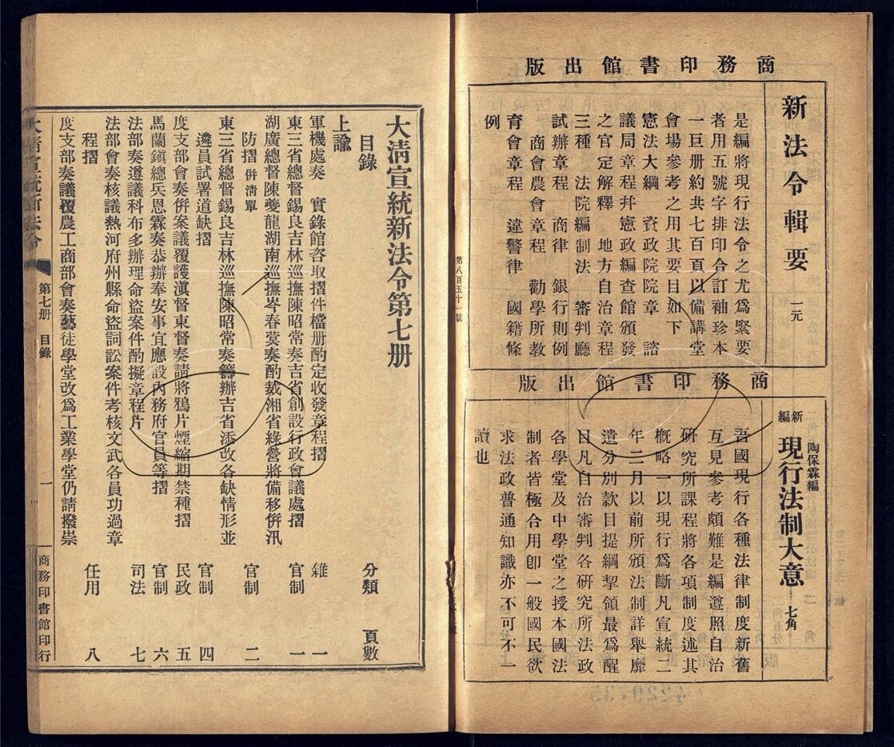 商務印書館出版
新法令輯要 一元
是編將現行法令之尤爲緊要
者用五號字排印合訂袖珍本
一巨册約共七百頁以備講堂
會場參考之用其要目如下
憲法大綱 資政院院章 諮
議局章程幷憲政編查館頒發
之官定解釋 地方自治章程
三種 法院編制法 審判廳
試辦章程 商律 銀行則例
商會農會章程 勸學所教
育會章程 違警律 國籍條
例
商務印書館出版
陶保霖編
新編 現行法制大意 七角
吾國現行各種法律制度新舊
互見參考頗難是編遵照自治
研究所課程將各項制度述其
概略一以現行爲斷凡宣統二
年二月以前所頒法制詳舉靡
遺分別款目提綱挈領最爲醒
目凡自治審判各研究所法政
各學堂及中學堂之授本國法
制者皆極合用卽一般國民欲
求法政普通知識亦不可不一
讀也
第八百五十一號
大淸宣統新法令第七册
目錄 分類 頁數
上諭
軍機處奏 實錄館咨取摺件檔册酌定收發章程摺 雜 一
東三省總督錫良吉林巡撫陳昭常奏吉省創設行政會議處摺 官制 一
湖廣總督陳夔龍湖南巡撫岑春蓂奏酌裁湘省綠營將備移併汛
防摺 併淸單 官制 二
東三省總督錫良吉林巡撫陳昭常奏籌辦吉省添改各缺情形並
遴員試署道缺摺 官制 四
度支部會奏併案議覆護滇督東督奏請將鴉片煙縮期禁種摺 民政 五
馬蘭鎭總兵恩霖奏恭辦奉安事宜應設內務府官員等摺 官制 六
法部奏遵議科布多辦理命盜案件酌擬章程片 司法 七
法部會奏核議熱河府州縣命盜詞訟案件考核文武各員功過章
程摺 任用 八
度支部奏議覆農工商部會奏藝徒學堂改爲工業學堂仍請撥崇
大淸宣統新法令 第七册 目錄 一 商務印書館印行